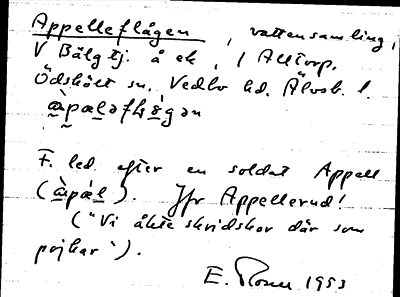 Appelleflågen, vattensamling,
V Bälgtj. å ek., / Alltorp,
Ödskölt sn, Vedbo hd. Älvsb. l.
àpælǝflɷgǝn
F. led efter en soldat Appell
(àpæ̀l). Jfr Appellerud!
("Vi åkte skridskor där som
pojkar").
E. Rosen 1953